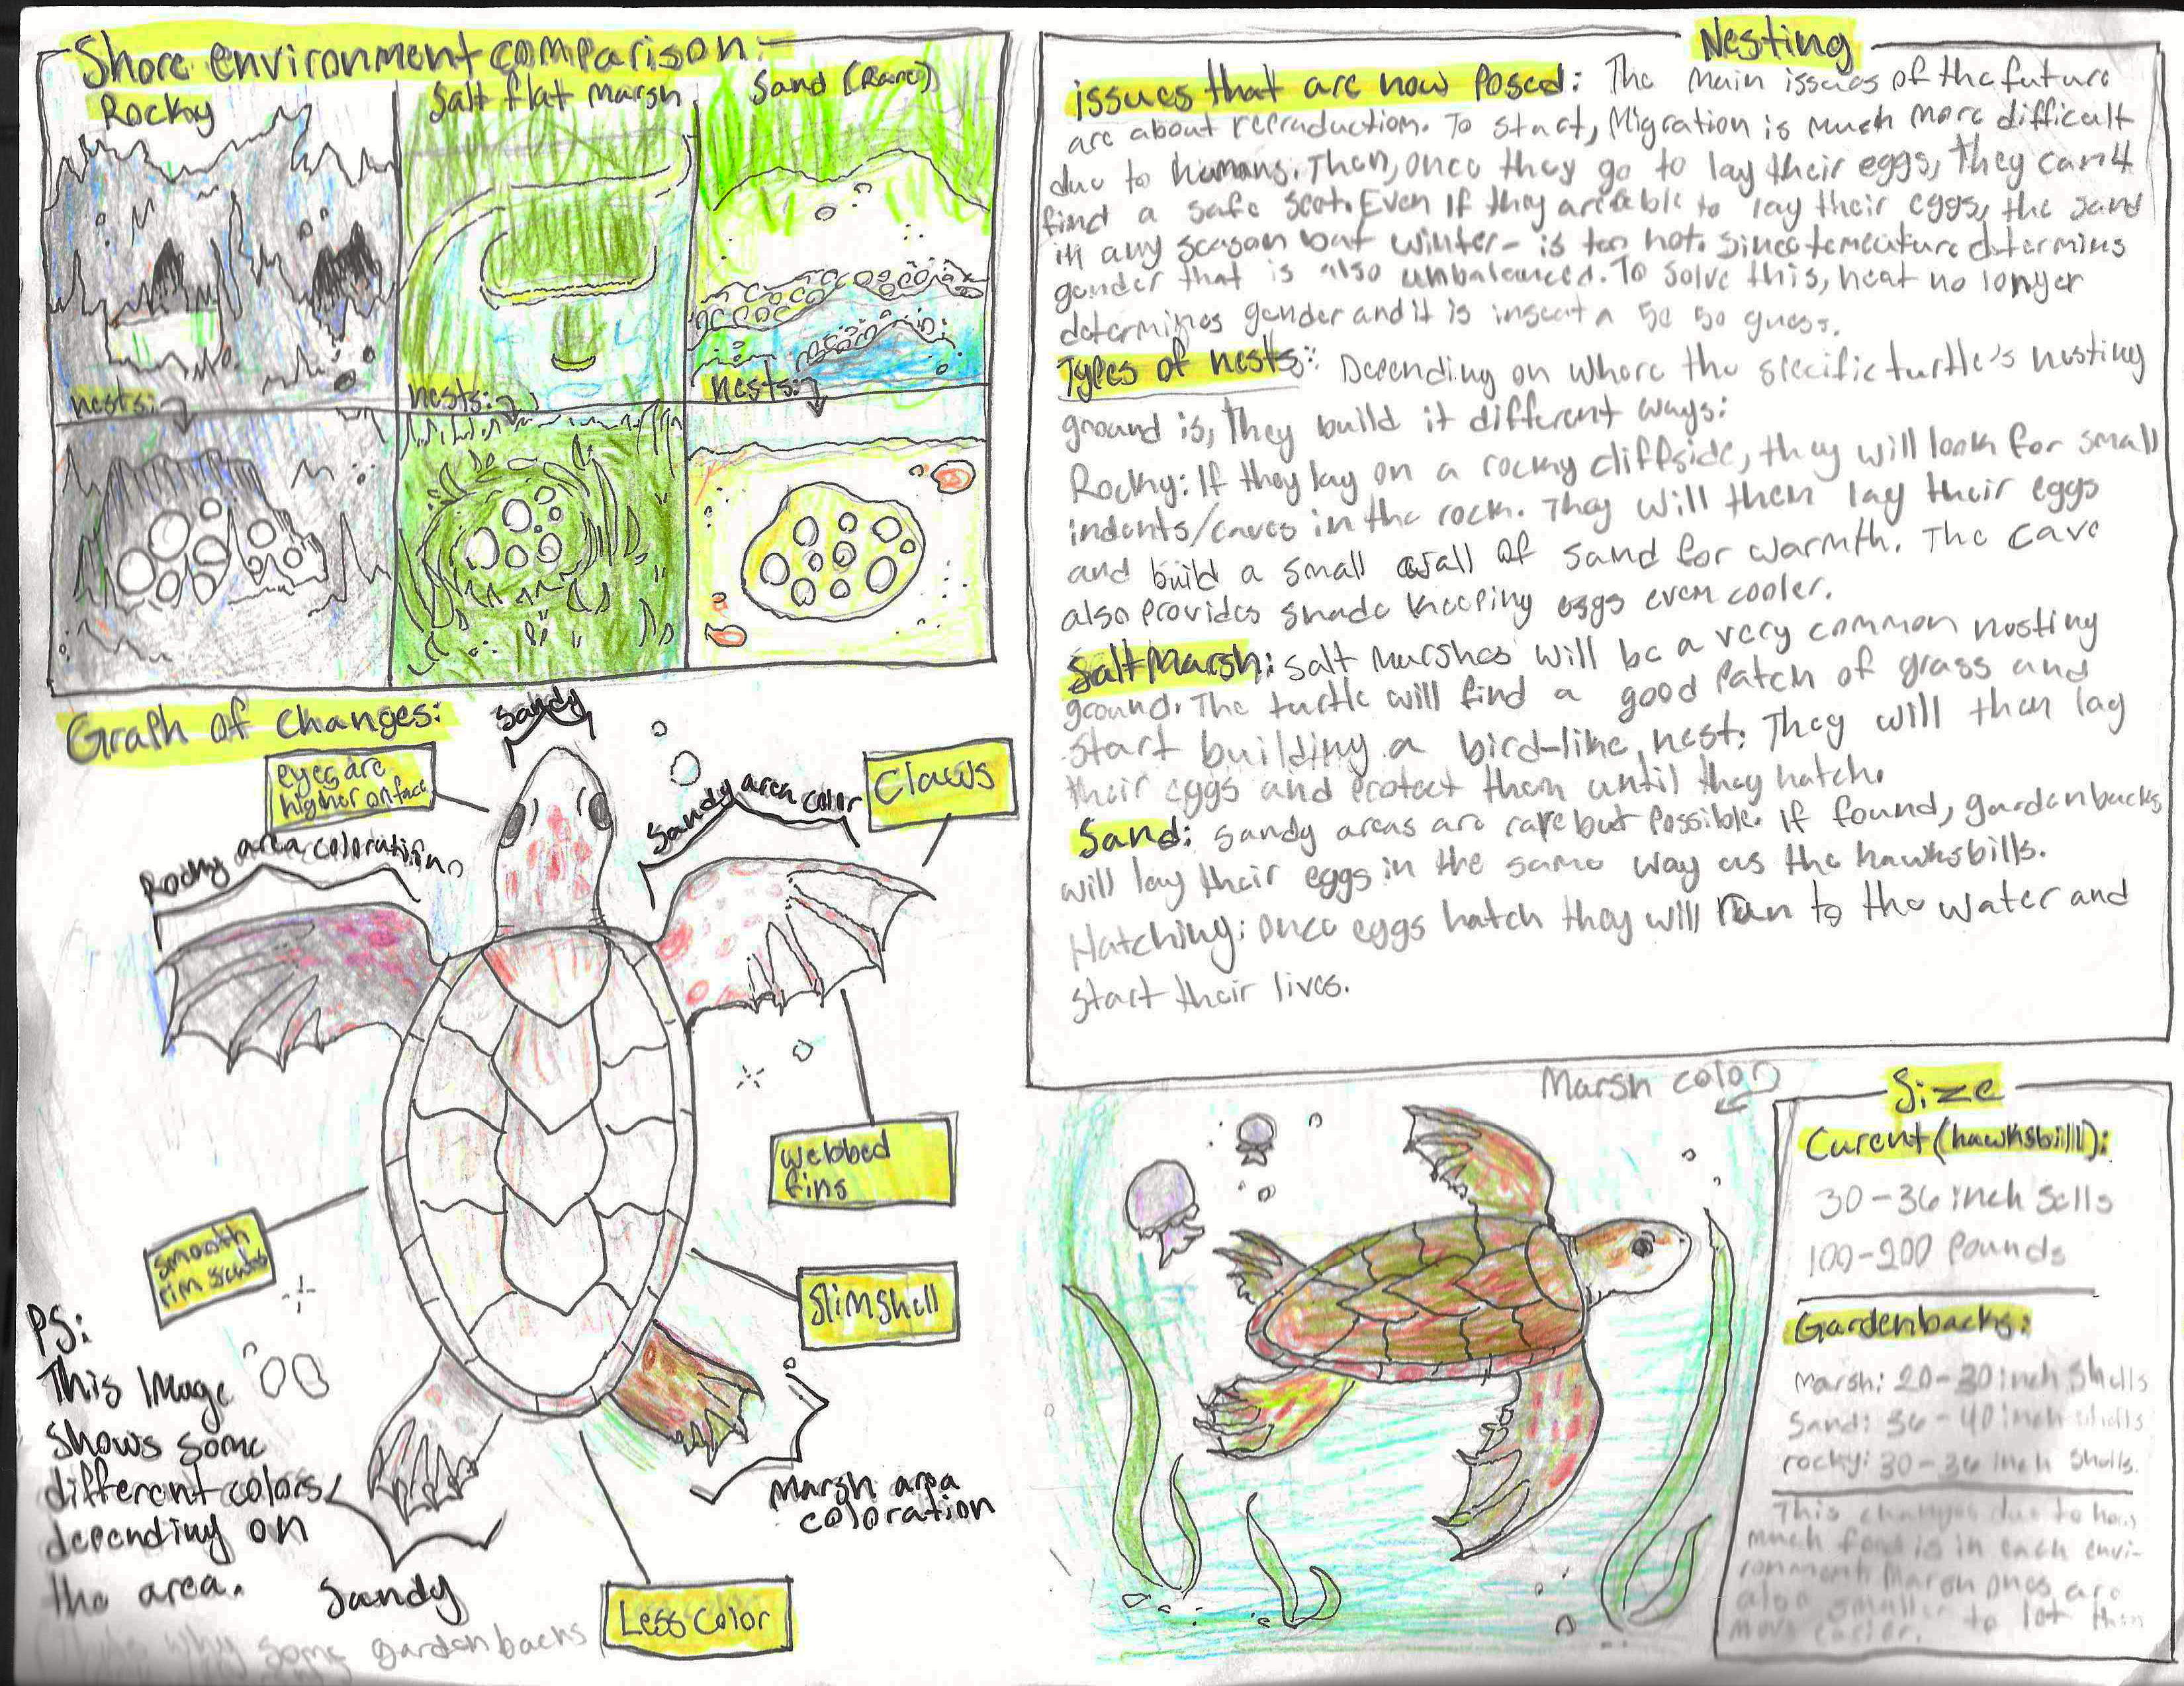 Shore environment comparison:
Rocky
Salt flat Marsh
Sand (Rare)
nests:
nests:
nests:
Graph of changes:
Sandy
eyes are
higher on face
Rocky area coloration
Sandy area color
Claws
webbed
fins
smooth
rim scutes
Slim shell
PS:
This Image
shows some
different colors
depending on
the area.
Sandy
Marsh area
coloration
Less Color
why some gardenbacks
Nesting
issues that are now Posed: The main issues of the future
are about repraduction. To start, Migration is much more difficult
due to humans. Then, once they go to lay their eggs, they can't
find a safe spot. Even if they are able to lay their eggs, the sand
in any season but winter- is too hot. Since tempature determins
gender that is also unbalanced. To solve this, heat no longer
determines gender and it is insent a 50 50 guess.
Types of nests: Depending on where the specific turtle's nesting
ground is, they build it different ways:
Rocky: If they lay on a rocky cliffside, they will look for small
indents/caves in the rock. They will then lay their eggs
and build a small wall of sand for warmth. The cave
also provides shade keeping eggs even cooler.
Salt Marsh: Salt marshes will be a very common nesting
ground. The turtle will find a good patch of grass and
start building a bird-like nest. They will then lay
their eggs and protect them until they hatch.
Sand: Sandy areas are rare but possible. If found, gardenbacks
will lay their eggs in the same way as the hawksbills.
Hatching: once eggs hatch they will run to the water and
start their lives.
Marsh color
Size
Curent (hawksbill):
30-36 inch Sells
100-200 Pounds
Gardenbacks:
Marsh: 20-30 inch Shells
Sand: 36-40 inch shells
rocky: 30-36 inch Shells.
This changes due to how
much food is in each envi-
ronment. Marsh ones are
also smaller to let them
move easier.